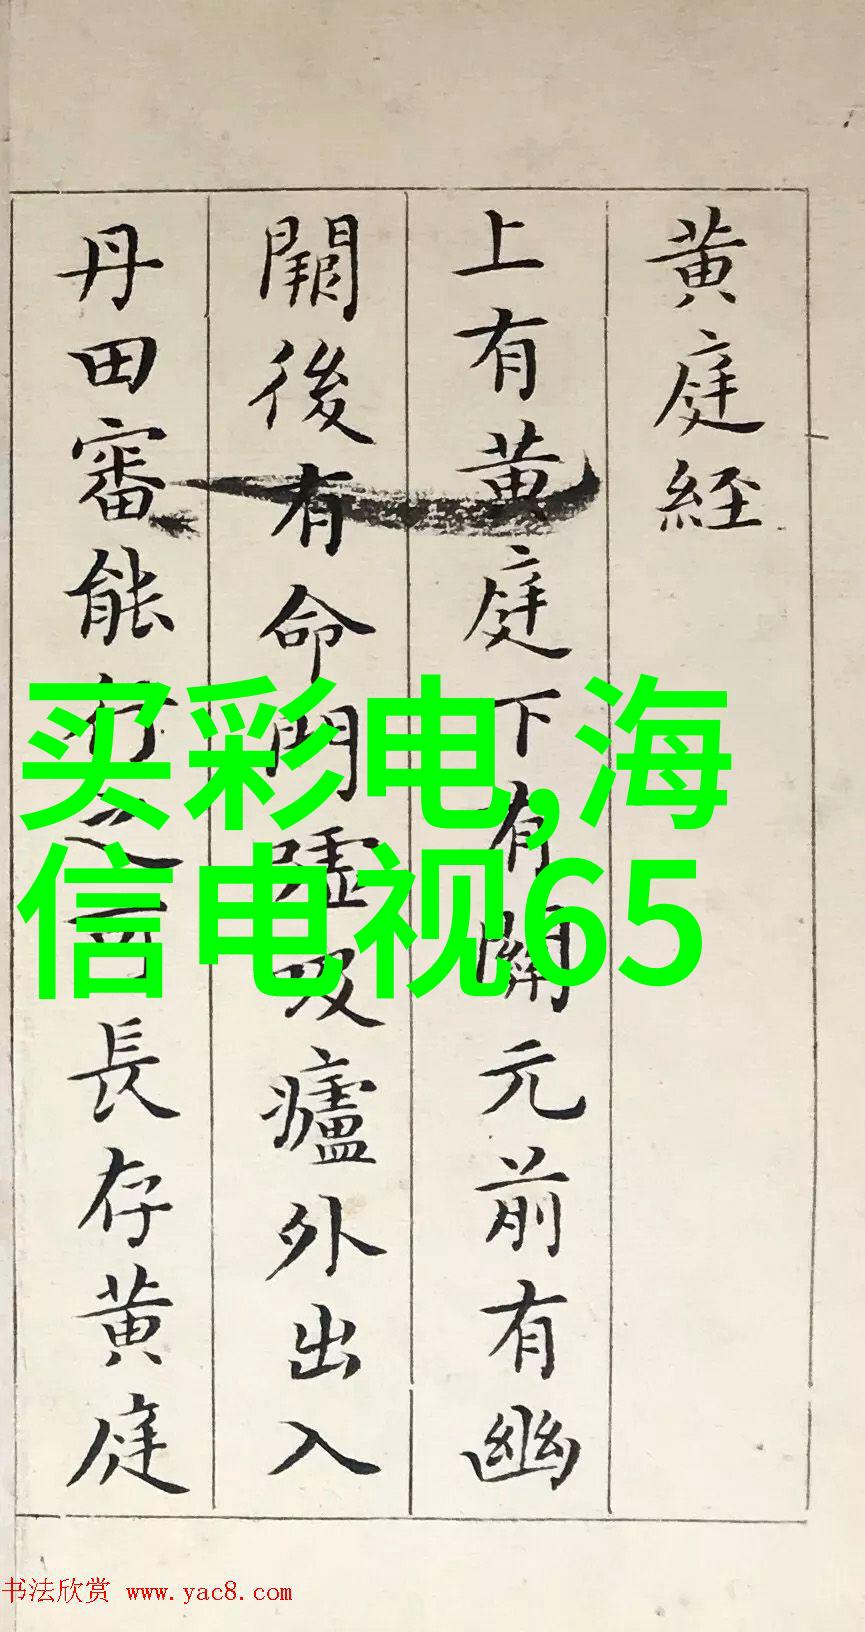 黄庭經
上有黄庭下有關元前有幽
闕後有命門嘘吸廬外出入
丹田審能行之可長存黄庭
买彩电,海
信电视65
书法欣赏 www.yac8.com